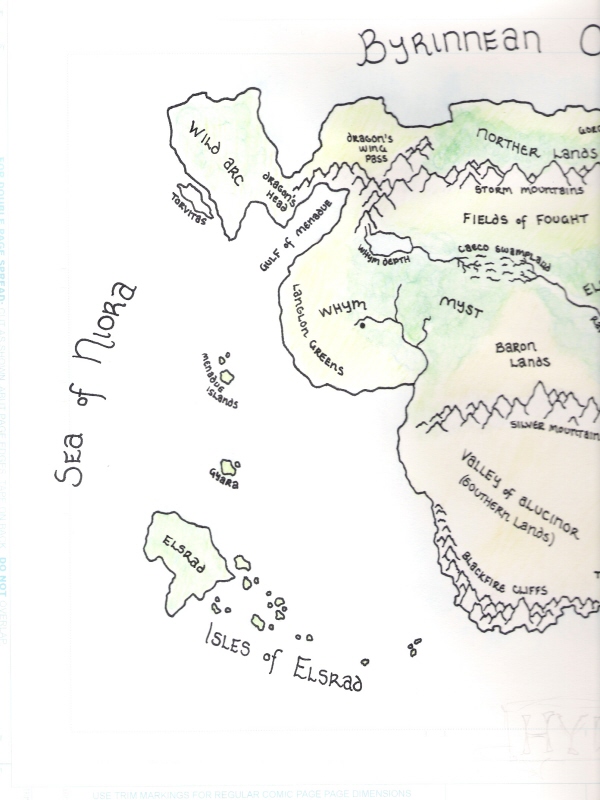 Byrinnean
Wild Arc
Dragon's
Wing
Pass
Norther Lands
Dragon's
Head
Torvitas
Storm Mountains
Fields of Fought
Gulf of Menadue
Whym Depth
Caeco Swampland
Langlon Greens
Whym
Myst
Sea of Niora
Baron
Lands
Menadue
Islands
Silver Mountain
Gyara
Valley of Alucinor
(Southern Lands)
Elsrad
Blackfire Cliffs
Isles of Elsrad
USE TRIM MARKINGS FOR REGULAR COMIC PAGE PAGE DIMENSIONS